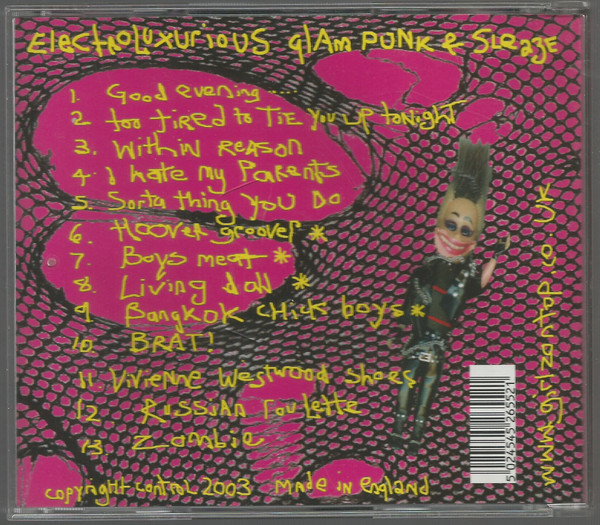 ElectroLuxurious glam PUNK & Sleaze
1. Good evening.....
2 too tired to TIE You UP tonight
3. Within Reason
4. I hate my Parents
5. Sorta thing YOU DO
6. Hoover groover *
7. Boys meat *
8. Living doll *
9 Bangkok chick boys *
10 BRAT!
11 Vivienne Westwood shoes
12 Russian roulette
13 Zombie
copyright-control 2003 Made in england
5 024545 265521